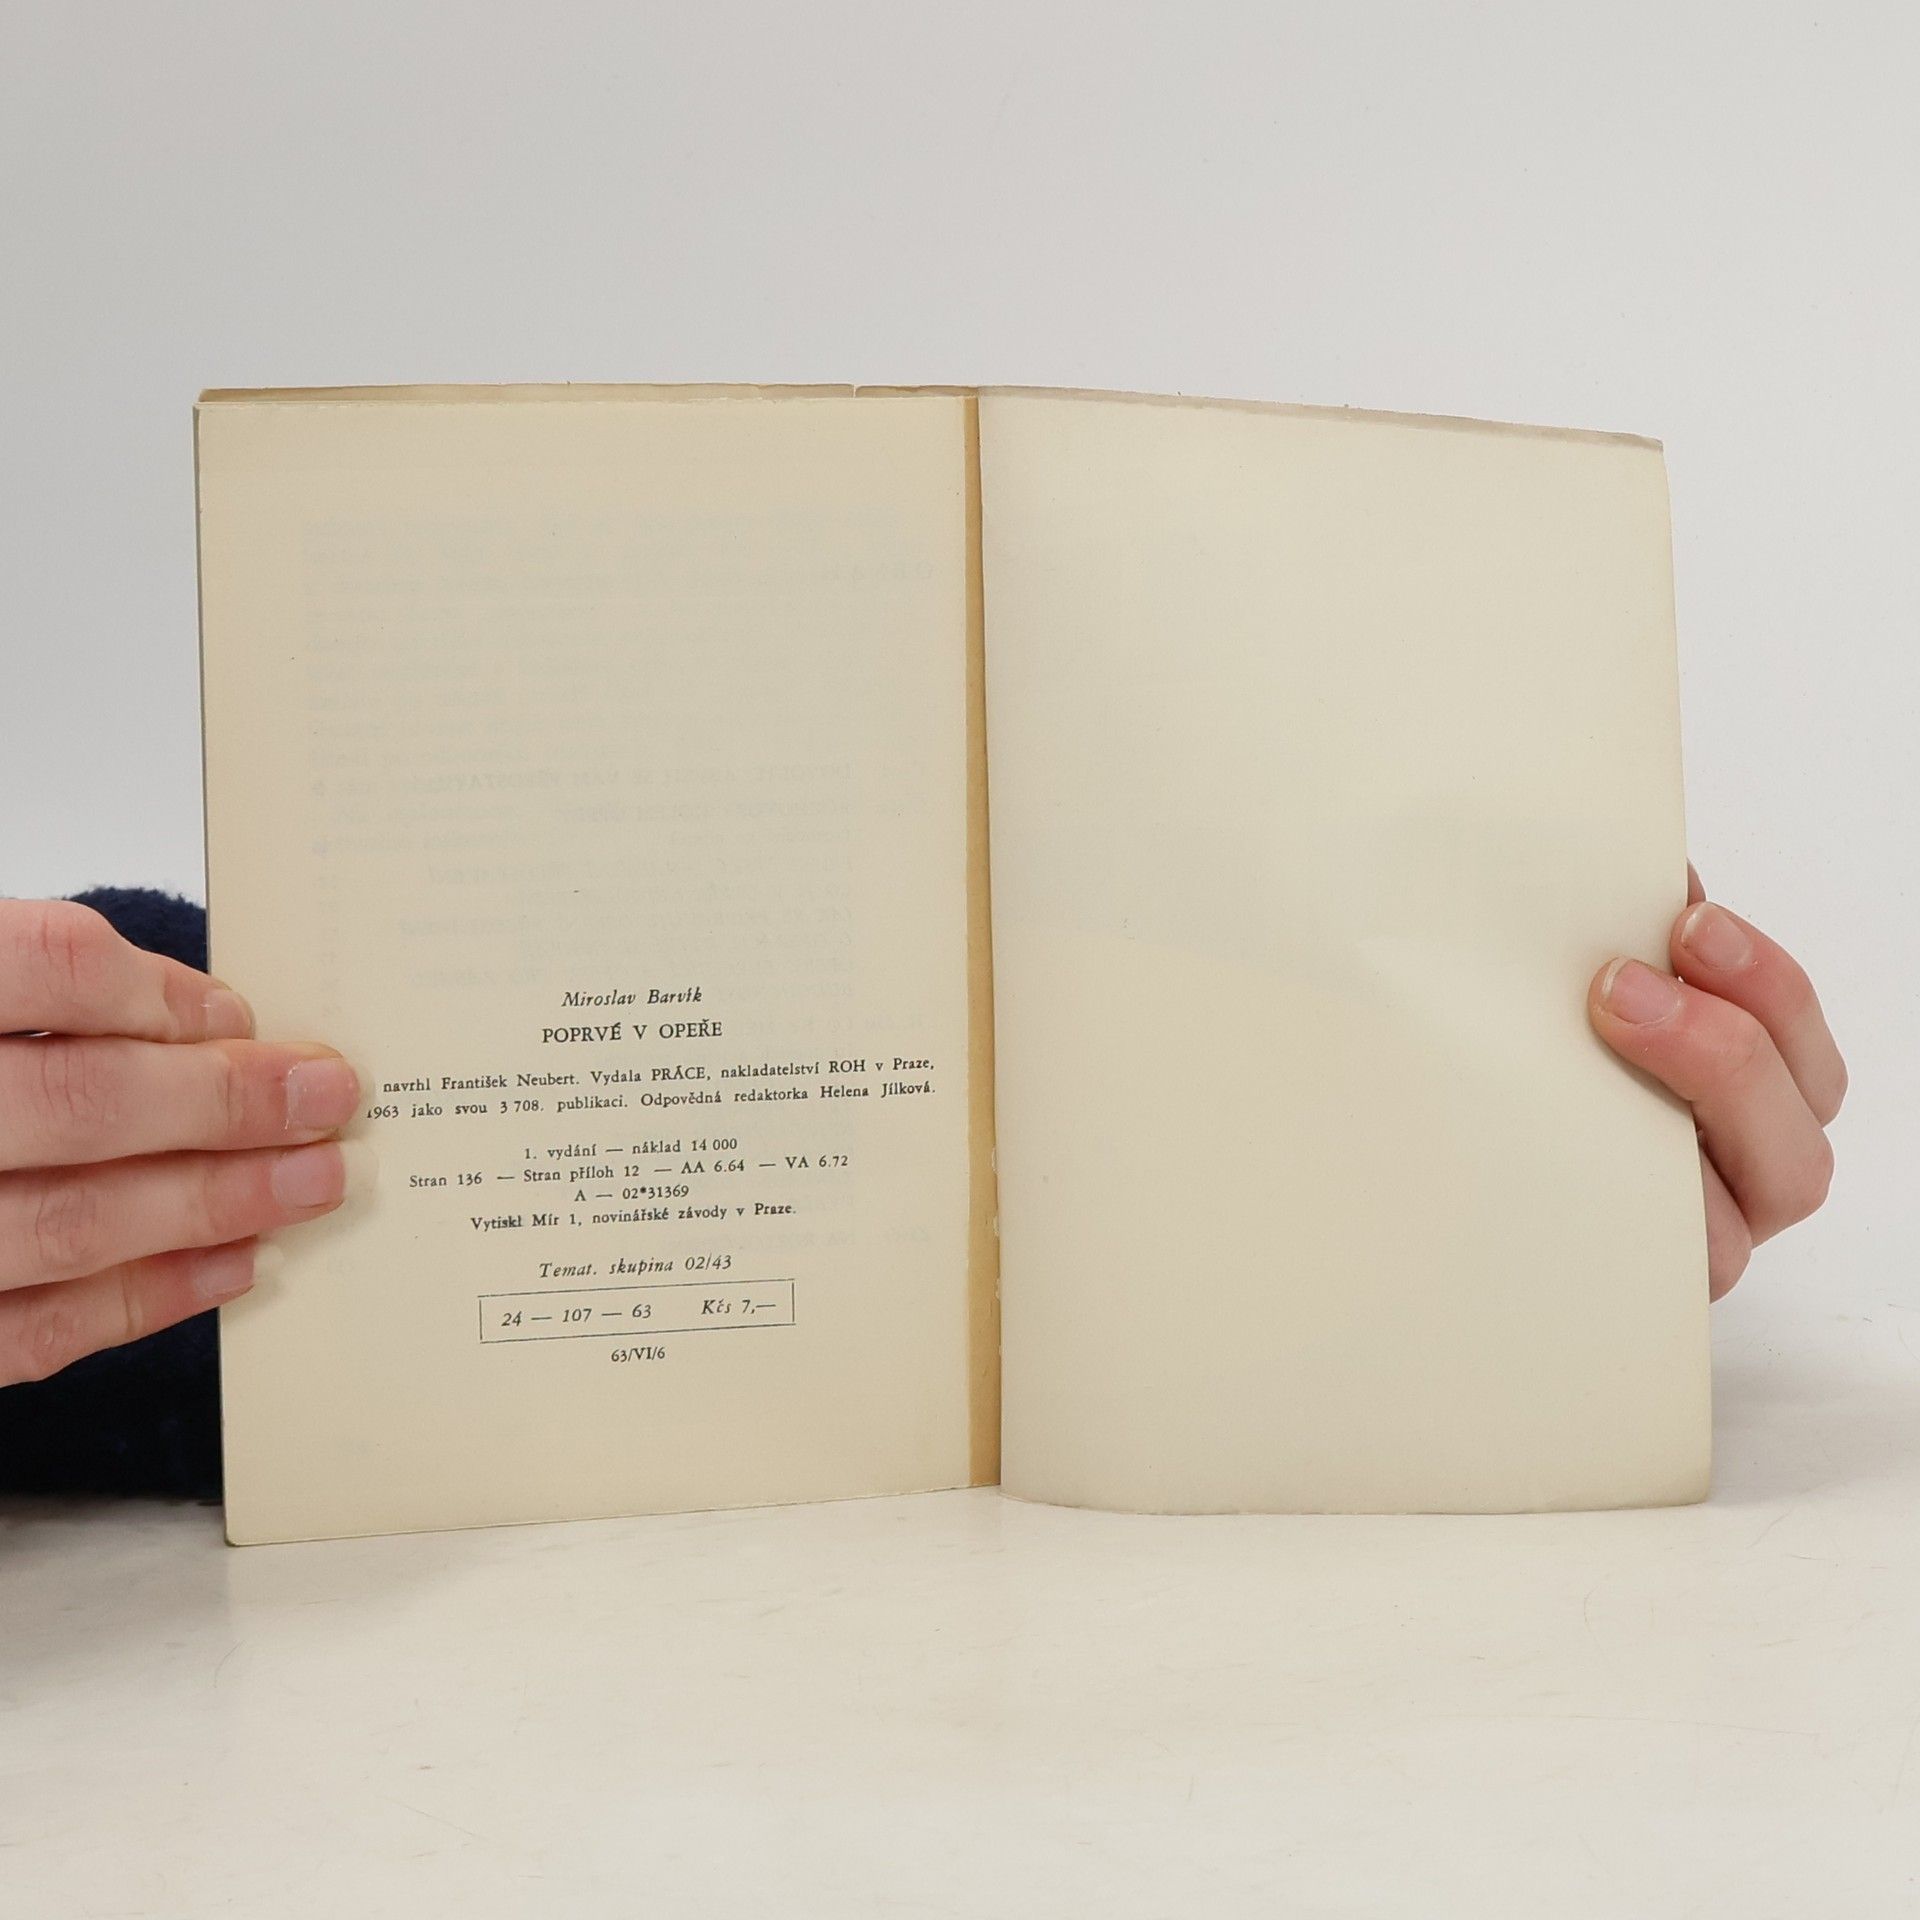 Miroslav Barvík
POPRVÉ V OPEŘE
navrhl František Neubert. Vydala PRÁCE, nakladatelství ROH v Praze,
1963 jako svou 3 708. publikaci. Odpovědná redaktorka Helena Jílková.
1. vydání — náklad 14 000
Stran 136 — Stran příloh 12 — AA 6.64 — VA 6.72
A — 02*31369
Vytiskl Mír 1, novinářské závody v Praze.
Temat. skupina 02/43
24 — 107 — 63 Kčs 7,—
63/VI/6